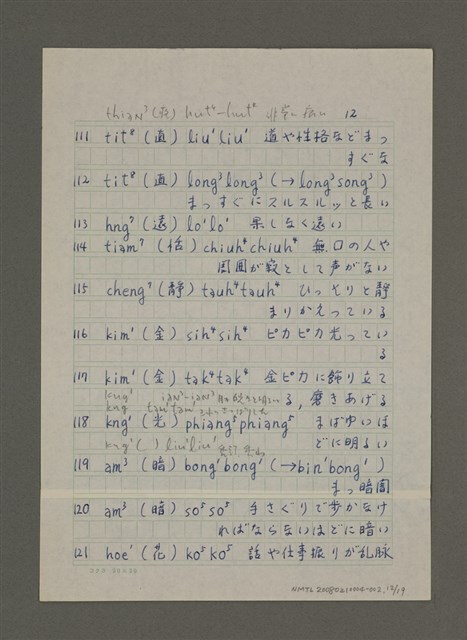 thiaN³(疼) hut⁸-hut⁸ 非常に 12
111 tit⁸(直) liu¹liu¹ 道や性格などまっ
すぐな
112 tit⁸(直) long³long³(→long³song³)
まっすぐにスルスルッと長い
113 hng⁷(遠) lo¹lo¹ 果しなく遠い
114 tiam⁷(恬) chiuh⁴chiuh⁴ 無口の人や
周囲が寂として声がない
115 cheng⁷(靜) tauh⁴tauh⁴ ひっそりと静
まりかえっている
116 kim¹(金) sih⁴sih⁴ ピカピカ光ってい
る
117 kim¹(金) tak⁴tak⁴ 金ピカに飾り立て
る,磨きあげる
118 kng¹(光) phiang⁵phiang⁵ まばゆいほ
どに明るい
kng¹( ) liu¹liu¹
119 am³(暗) bong¹bong¹(→bin¹bong¹)
まっ暗闇
120 am³(暗) so⁵so⁵ 手さぐりで歩かなけ
ればならないほどに暗い
121 hoe¹(花) ko⁵ko⁵ 話や仕事振りが乱脈
NMTL20080210004-002, 12/19